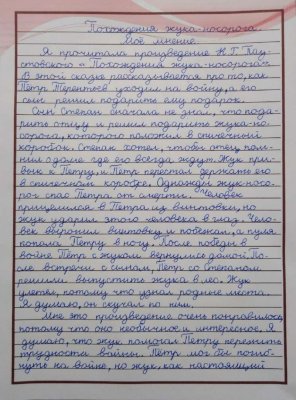 Похождения жука-носорога
Мое мнение.
Я прочитала произведение К.Г. Пау-
стовского "Похождения жука-носорога".
В этой сказке рассказывается про то, как
Пётр Терентьев уходил на войну, а его
сын решил подарить ему подарок.
Сын Степан сначала не знал, что пода-
рить отцу и решил подарить жука-но-
сорога, которого положил в спичечный
коробок. Степан хотел, чтобы отец пом-
нил о доме где его всегда ждут. Жук при-
вык к Петру, и Петр перестал держать его
в спичечном коробке. Однажды жук-носо-
рог спас Петра от смерти. Человек
прицелился в Петра из винтовки, но
жук ударил этого человека в глаз. Чело-
век выронил винтовку и побежал, а пуля
попала Петру в ногу. После победы в
войне Пётр с жуком вернулись домой. По-
сле встречи с сыном, Петр со Степаном
решили выпустить жука в лес. Жук
улетел, потому что узнал родные места.
Я думаю, он скучал по ним.
Мне это произведение очень понравилось,
потому что оно необычное и интересное. Я
думаю, что жук помогал Петру пережить
трудности войны. Пётр мог бы погиб-
нуть на войне, но жук, как настоящий